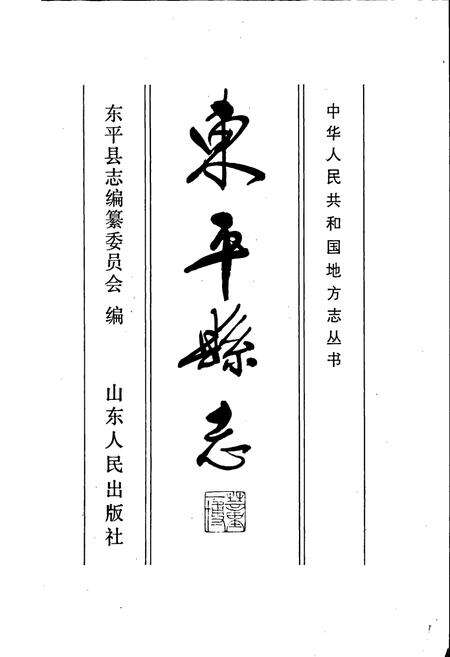 中华人民共和国地方志丛书
東平縣志
东平县志编纂委员会 编
山东人民出版社